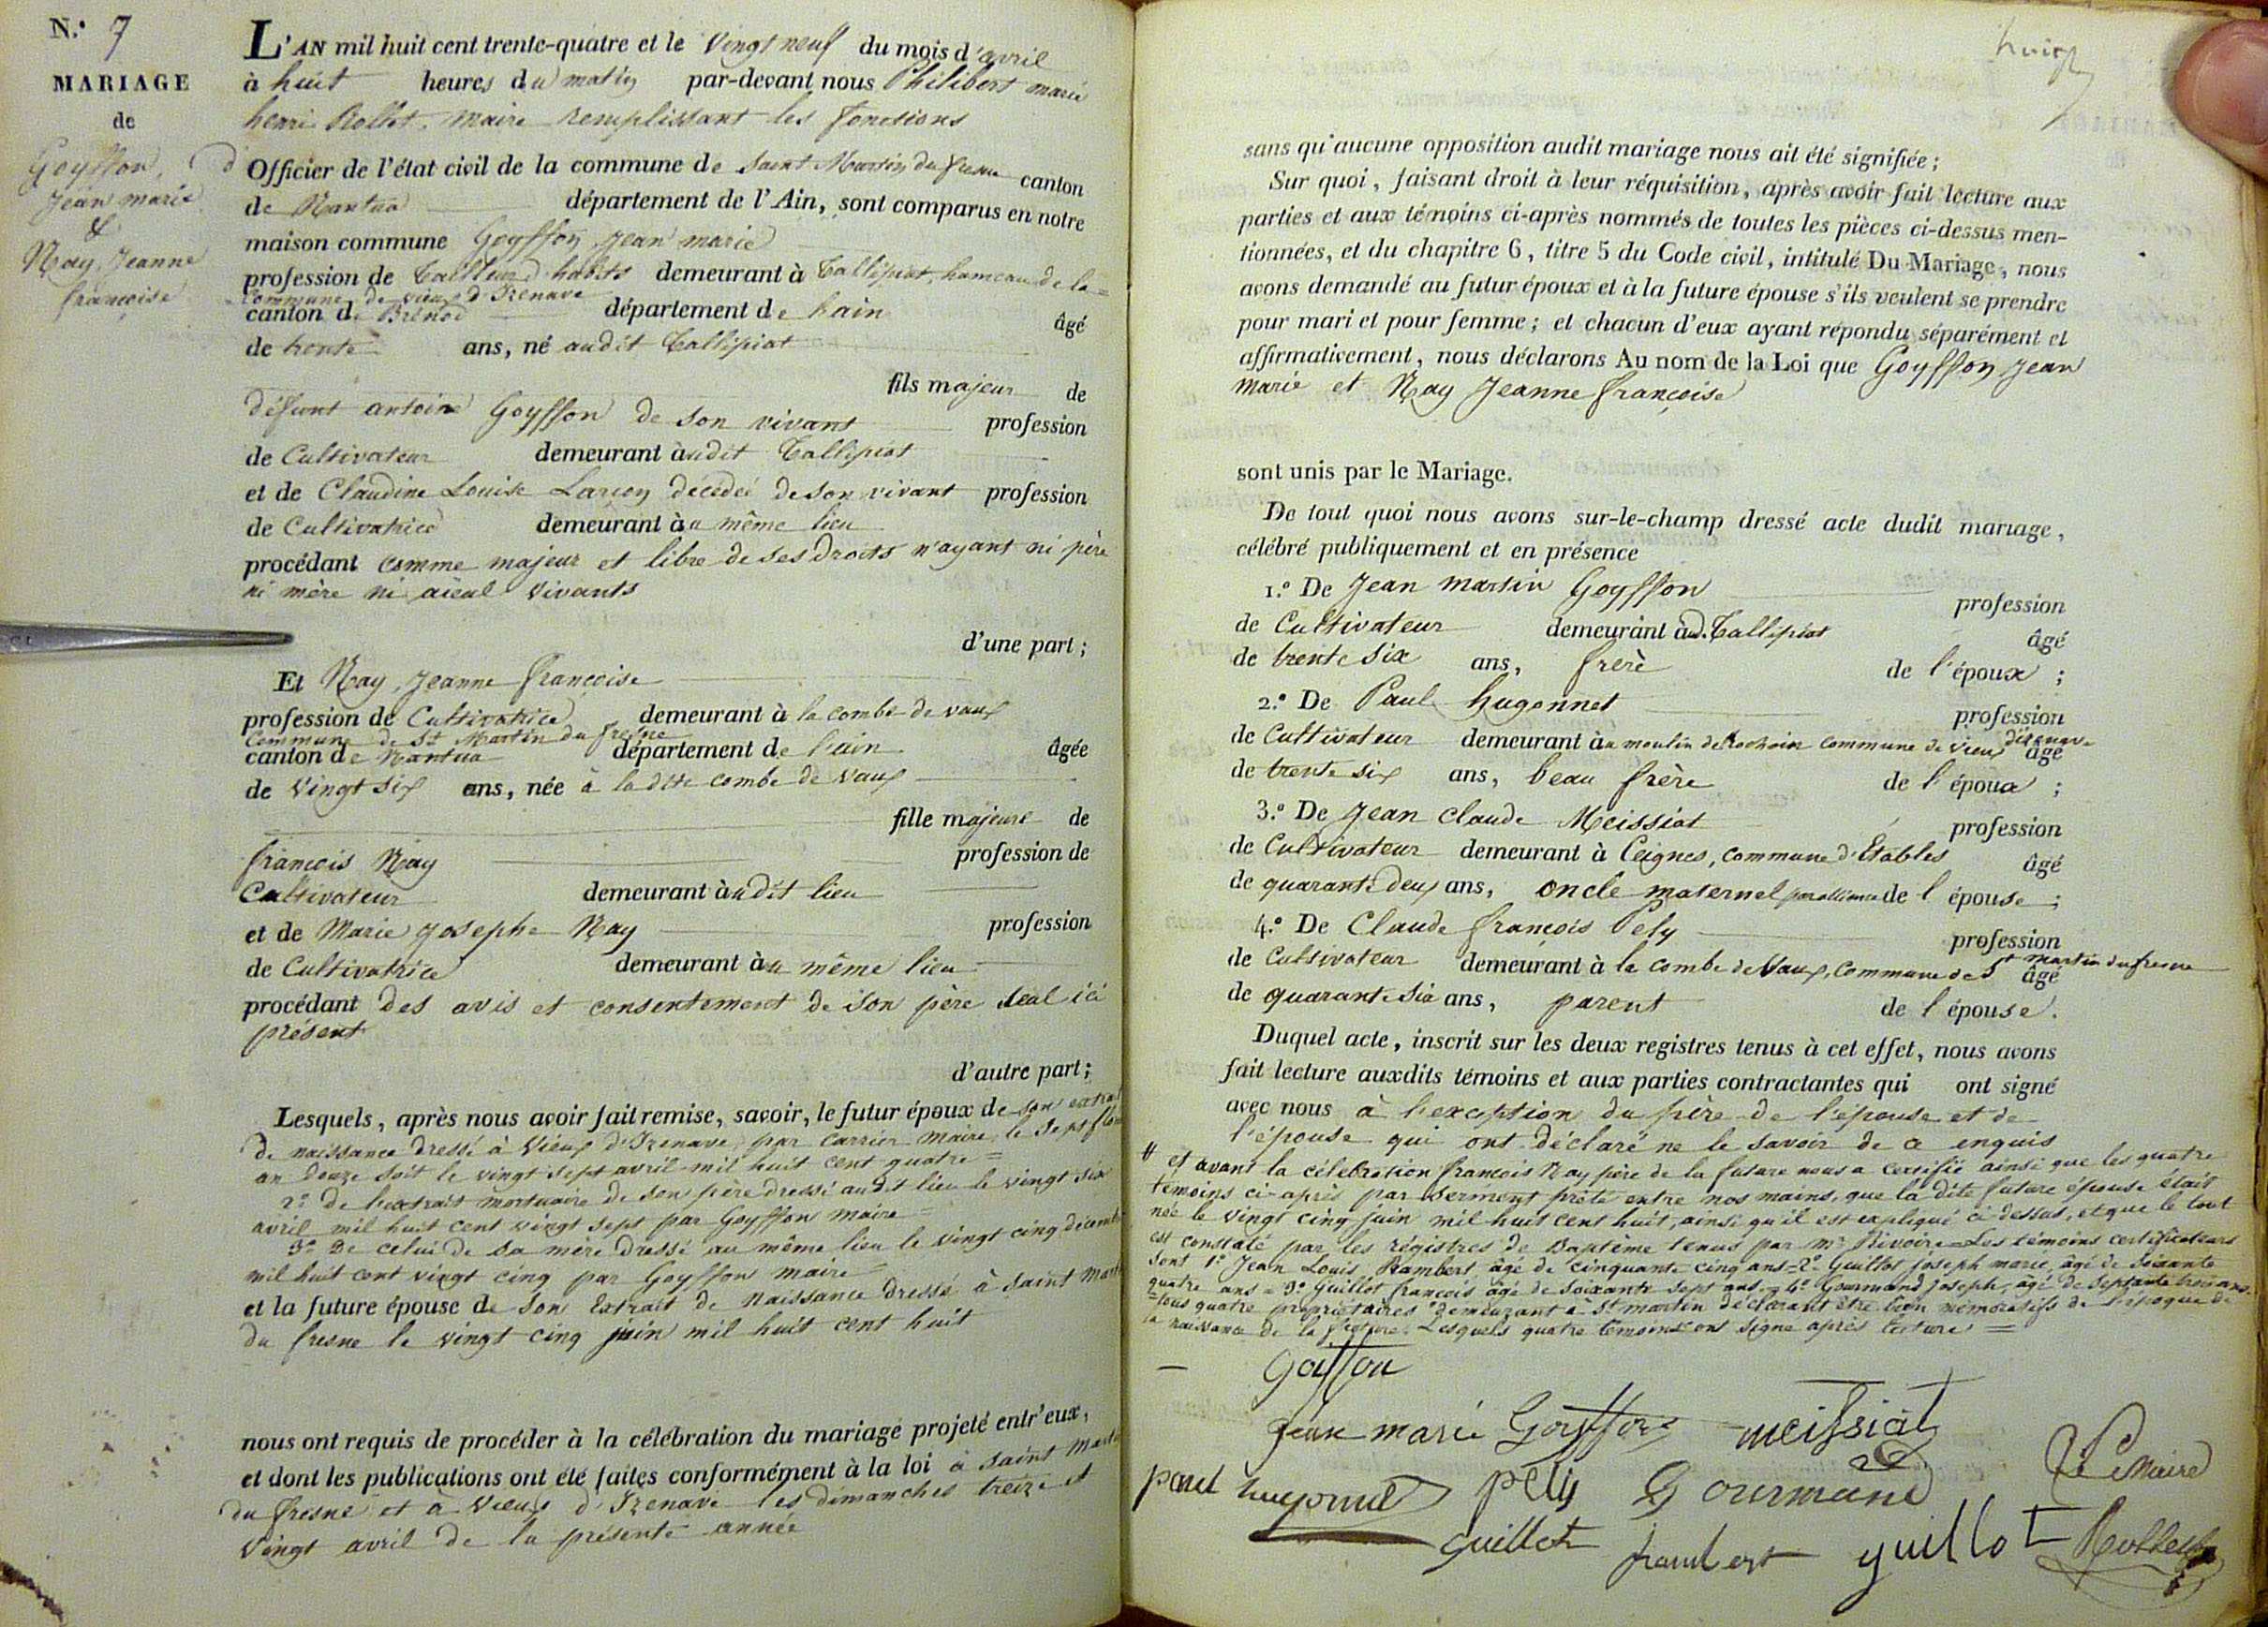 N.° 7
MARIAGE
de
Goyffon,
Jean marie
&
Nay, Jeanne
françoise
L'AN mil huit cent trente-quatre et le vingt neuf du mois d'avril
à huit heures du matin par-devant nous Philibert marie
henri Rollet, maire remplissant les fonctions
d'Officier de l'état civil de la commune de Saint Martin du fresne canton
de Nantua département de l'Ain, sont comparus en notre
maison commune Goyffon Jean marie
profession de Tailleur d'habits demeurant à Tallipiat, hameau de la =
Commune de vieux d'Izenave
canton de Brénod département de l'ain âgé
de trente ans, né audit Tallipiat
fils majeur de
défunt antoine Goyffon de son vivant profession
de Cultivateur demeurant audit Tallipiat
et de Claudine Louise Larçon décédée de son vivant profession
de Cultivatrice demeurant au même lieu
procédant comme majeur et libre de ses droits n'ayant ni père
ni mère ni aïeul vivants
d'une part ;
Et Nay, Jeanne françoise
profession de Cultivatrice demeurant à la combe de vaux
Commune de St Martin du fresne
canton de Nantua département de l'ain âgée
de vingt six ans, née à la dite combe de vaux
fille majeure de
françois Nay profession de
Cultivateur demeurant audit lieu
et de Marie Josephe Nay profession
de Cultivatrice demeurant au même lieu
procédant des avis et consentement de son père seul ici
présent
d'autre part ;
Lesquels, après nous avoir fait remise, savoir, le futur époux de son extrait
de naissance dressé à vieux d'Izenave, par Carrier maire, le sept
an douze soit le vingt sept avril mil huit cent quatre =
2° de l'extrait mortuaire de son père dressé audit lieu le vingt six
avril mil huit cent vingt sept par Goyffon maire =
3° De celui de sa mère dressé au même lieu le vingt cinq décembre
mil huit cent vingt cinq par Goyffon maire =
et la future épouse de son Extrait de naissance dressé à saint Martin
du fresne le vingt cinq juin mil huit cent huit
nous ont requis de procéder à la célébration du mariage projeté entr'eux,
et dont les publications ont été faites conformément à la loi à saint Martin
du fresne et à vieux d'Izenave les dimanches treize et
vingt avril de la présente année
huit
sans qu'aucune opposition audit mariage nous ait été signifiée ;
Sur quoi, faisant droit à leur réquisition, après avoir fait lecture aux
parties et aux témoins ci-après nommés de toutes les pièces ci-dessus men-
tionnées, et du chapitre 6, titre 5 du Code civil, intitulé Du Mariage, nous
avons demandé au futur époux et à la future épouse s'ils veulent se prendre
pour mari et pour femme ; et chacun d'eux ayant répondu séparément et
affirmativement, nous déclarons Au nom de la Loi que Goyffon Jean
marie et Nay Jeanne françoise
sont unis par le Mariage.
De tout quoi nous avons sur-le-champ dressé acte dudit mariage,
célébré publiquement et en présence
1.° De Jean Martin Goyffon profession
de Cultivateur demeurant aud. Tallipiat âgé
de trente six ans, frère de l'époux ;
2.° De Paul hugonnet profession
de Cultivateur demeurant au moulin de commune de vieux d'izenave âgé
de trente six ans, beau frère de l'époux ;
3.° De Jean Claude Meissiat profession
de Cultivateur demeurant à Ceignes, commune d'Etables âgé
de quarante deux ans, oncle maternel par alliance de l'épouse ;
4.° De Claude françois Pely profession
de Cultivateur demeurant à la combe de Vaux, commune de St martin du fresne âgé
de quarante six ans, parent de l'épouse.
Duquel acte, inscrit sur les deux registres tenus à cet effet, nous avons
fait lecture auxdits témoins et aux parties contractantes qui ont signé
avec nous à l'exception du père de l'épouse et de
l'épouse qui ont déclaré ne le savoir de ce enquis
# et avant la célébration françois Nay père de la future nous a certifié ainsi que les quatre
témoins ci-après par serment prêté entre nos mains, que la dite future épouse était
née le vingt cinq juin mil huit cent huit, ainsi qu'il est expliqué ci dessus, et que le tout
est constaté par les régistres de Baptême tenus par Mr Rivoire = Les témoins certificateurs
sont 1° Jean Louis Rambert âgé de cinquante cinq ans = 2° Guillot Joseph marie, âgé de soixante
quatre ans = 3° Guillot françois âgé de soixante sept ans = 4° Gourmand Joseph, âgé de septante trois ans.
= tous quatre propriétaires demeurant à St martin déclarant être bien mémoratifs de l'époque de
la naissance de la future. Lesquels quatre témoins ont signé après lecture =
Goiffon
Jean marie Goyffon meissiat
paul hugonnet pely Gourmand Le Maire
guillot Rambert guillot Rollet